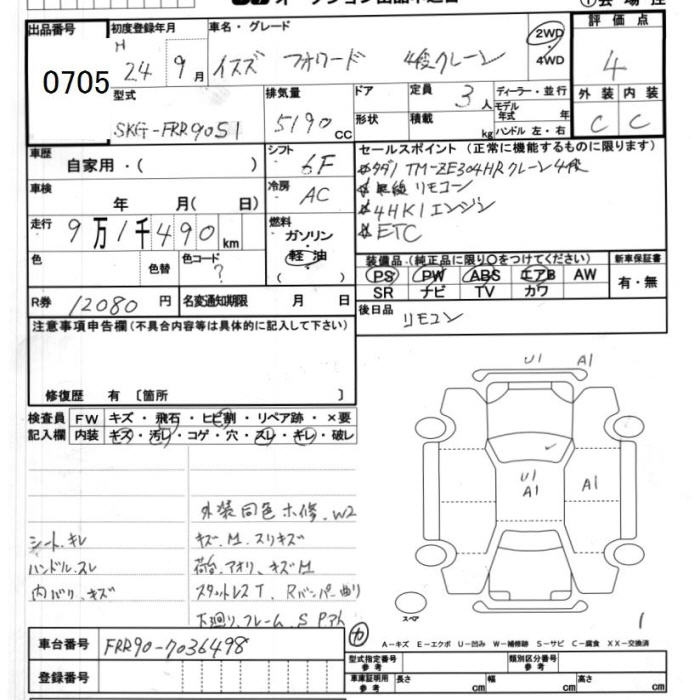 オークション出品申込書
出品番号 0705
初度登録年月 H 24 9月
車名・グレード イスズ フォワード 4段クレーン
2WD・4WD
評価点 4
外装 C 内装 C
型式 SKG-FRR90S1
排気量 5190 cc
ドア
形状
定員 3人
積載 kg
ディーラー・並行
モデル年式 年
ハンドル 左・右
車歴 自家用・( )
シフト 6F
車検 年 月( 日)
冷房 AC
走行 9万1千490 km
燃料 ガソリン・軽油・( )
色 色替
色コード ?
R券 12080 円
名変通知期限 月 日
セールスポイント (正常に機能するものに限ります)
☆タダノ TM-ZE304HR クレーン4段
☆無線リモコン
☆4HK1エンジン
☆ETC
装備品 (純正品に限り○をつけてください)
PS PW ABS エアB AW
SR ナビ TV カワ
新車保証書 有・無
後日品 リモコン
注意事項申告欄 (不具合内容等は具体的に記入して下さい)
修復歴 有 〔箇所 〕
検査員記入欄
FW キズ・飛石・ヒビ割・リペア跡・×要
内装 キズ・汚レ・コゲ・穴・スレ・キレ・破レ
外装同色ホ修、W2
シート、キレ
キズ、M、スリキズ
ハンドル、スレ
荷台、アオリ、キズM
内バリ、キズ
スタットレスT、Rバンパー曲り
下廻り、フレーム、S Pアト
U1 A1
U1
A1
A1
スペア
1
カ
A-キズ E-エクボ U-凹み W-補修跡 S-サビ C-腐食 XX-交換済
車台番号 FRR90-7036498
登録番号
型式指定番号 参考
類別区分番号 参考
車庫証明用 参考 長さ cm 幅 cm 高さ cm